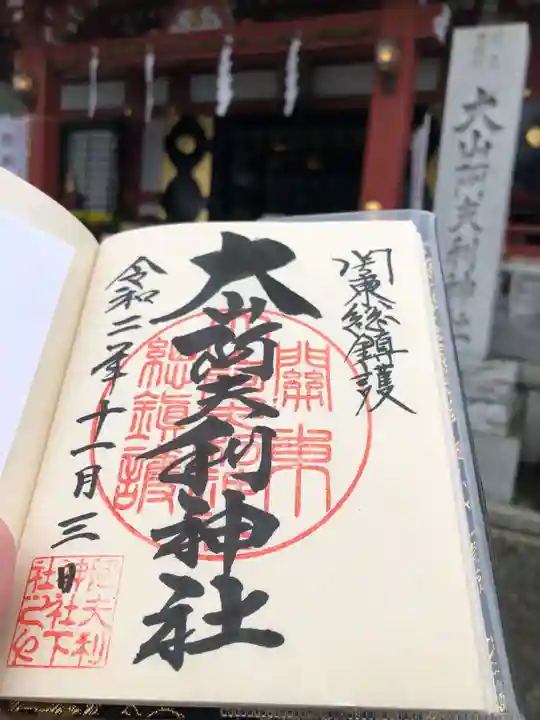 関東総鎮護
大山阿夫利神社
令和二年十一月三日
關東
総鎮護
阿夫利
神社下
社之印
大山阿夫利神社